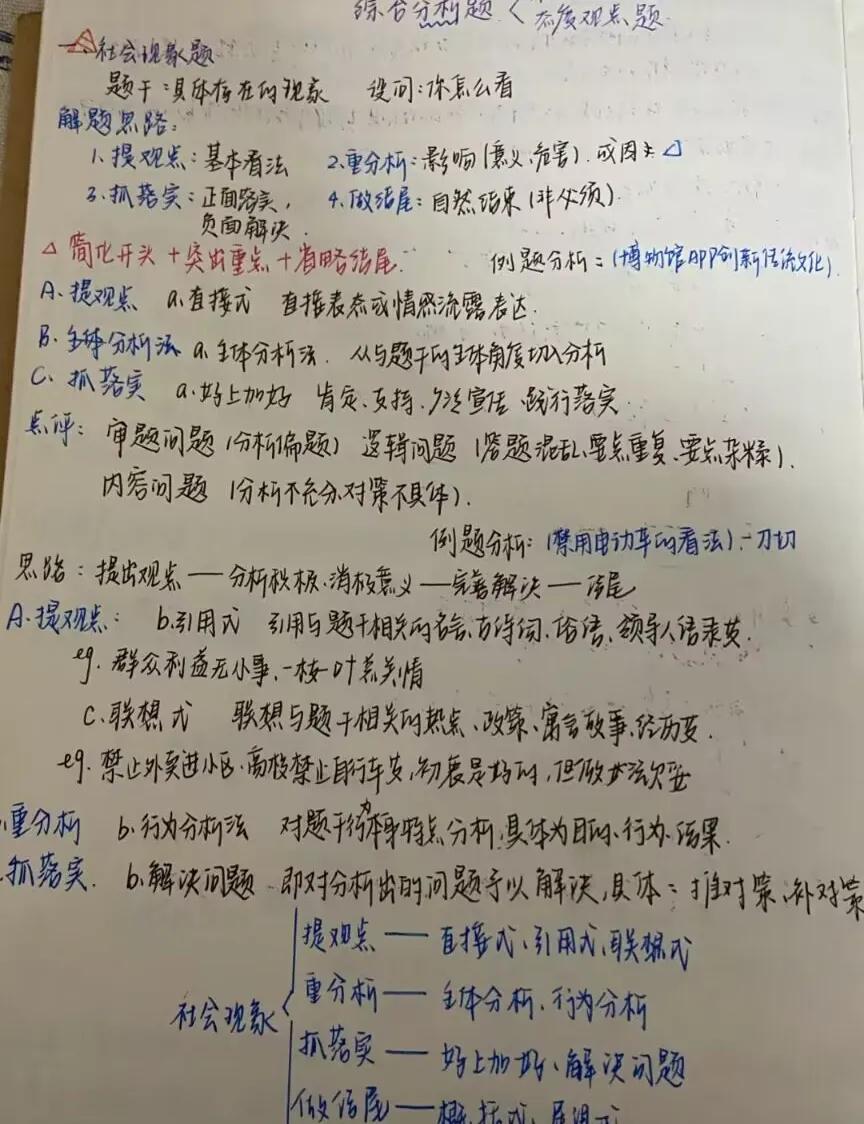 综合分析题 < 态度观点题
社会现象题
题干:具体存在的现象 设问:你怎么看
解题思路:
1.提观点:基本看法 2.重分析:影响(意义、危害).成因
3.抓落实:正面落实, 4.做结尾:自然结束(非必须).
负面解决.
△ 简化开头+突出重点+省略结尾.
例题分析:(博物馆APP创新传统文化).
A.提观点 a.直接式 直接表态或情感流露表达.
B.主体分析法 a.主体分析法. 从与题干的主体角度切入分析
C.抓落实 a.好上加好 肯定、支持、广泛宣传、践行落实.
点评: 审题问题(分析偏题) 逻辑问题(答题混乱、要点重复、要点杂糅).
内容问题(分析不充分、对策不具体).
例题分析:(禁用电动车的看法).一刀切
思路:提出观点——分析积极、消极意义——完善解决——结尾
A.提观点: b.引用式 引用与题干相关的名言、古诗词、俗语、领导人语录等.
eg.群众利益无小事,一枝一叶总关情
C.联想式 联想与题干相关的热点、政策、寓言故事、经历等.
eg.禁止外卖进小区、高校禁止自行车等,初衷是好的,但做法欠妥
重分析 b.行为分析法 对题干行为本身特点分析,具体为目的、行为、结果.
抓落实. b.解决问题 即对分析出的问题予以解决,具体:推对策、补对策
提观点——直接式、引用式、联想式
重分析——主体分析、行为分析
社会现象
抓落实——好上加好、解决问题
做结尾——概括式、